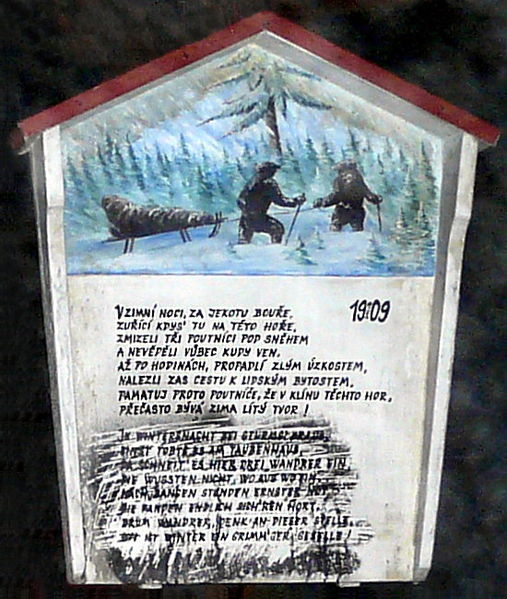 VZIMNÍ NOCI, ZA JEKOTU BOUŘE, 19:09
ZUŘÍCÍ KDYS' TU NA TÉTO HOŘE,
ZMIZELI TŘI POUTNÍCI POD SNĚHEM
A NEVĚDĚLI VŮBEC KUDY VEN.
AŽ PO HODINÁCH, PROPADLÍ ZLÝM ÚZKOSTEM,
NALEZLI ZAS CESTU K LIDSKÝM BYTOSTEM.
PAMATUJ PROTO POUTNÍČE, ŽE V KLÍNU TĚCHTO HOR,
PŘEČASTO BÝVÁ ZIMA LÍTÝ TVOR !
WINTERSNACHT BEI
ES AM TAUBENHAUS,
ES HIER DREI WANDRER EIN
WUSSTEN NICHT, WO AUS
BANGEN STUNDEN ERNSTER
FANDEN ENDLICH
DRUM WANDRER, DENK AN DIESER STELLE,
WINTER EIN GRIMM'GER GESELLE !